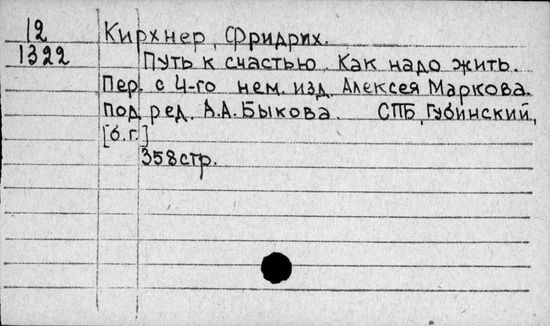 12 Кирхнер, Фридрих.
1322 Путь к счастью. Как надо жить.
Пер. с 4-го нем. изд. Алексея Маркова.
под ред. В.А. Быкова. СПБ, Губинский,
[б.г.]
358 стр.